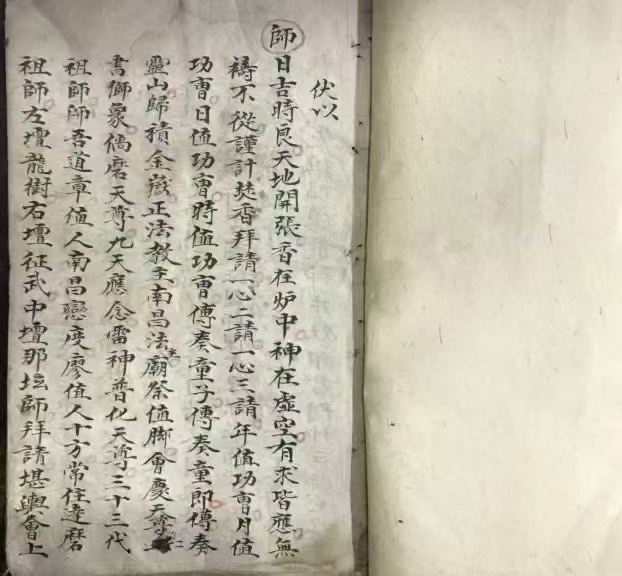 伏以
師日吉時良天地開張香在炉中神在虛空有求皆應無
禱不從謹計焚香拜請一心二請一心三請年值功曹月值
功曹日值功曹時值功曹傳奏童子傳奏童即傳奏
靈山歸積金嶽正法教主南昌法主廟祭值脚會慶天尊
書御象倘磨天尊九天應念雷神普化天尊三十三代
祖師師吾道章值人南昌戀度廖值人十方常住達磨
祖師左壇龍樹右壇征武中壇那坛師拜請堪輿會上